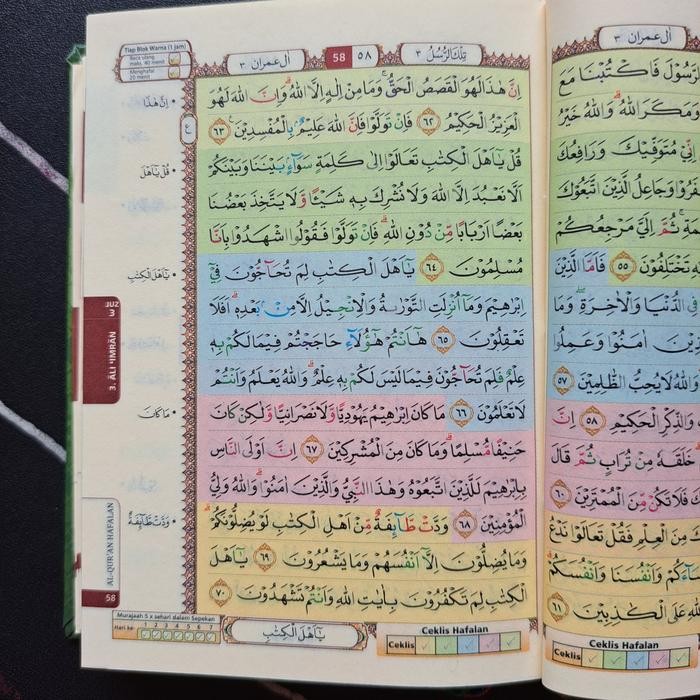 Tiap Blok Warna (1 jam)
Baca ulang
maks. 40 menit
Menghafal
20 menit
اٰل عمران ٣
58 ٥٨
تِلْكَ الرُّسُلُ ٣
اِنَّ هٰذَا لَهُوَ الْقَصَصُ الْحَقُّ ۚ وَمَا مِنْ اِلٰهٍ اِلَّا اللّٰهُ ۗوَاِنَّ اللّٰهَ لَهُوَ
الْعَزِيْزُ الْحَكِيْمُ ٦٢ فَاِنْ تَوَلَّوْا فَاِنَّ اللّٰهَ عَلِيْمٌۢ بِالْمُفْسِدِيْنَ ࣖ ٦٣
قُلْ يٰٓاَهْلَ الْكِتٰبِ تَعَالَوْا اِلٰى كَلِمَةٍ سَوَاۤءٍۢ بَيْنَنَا وَبَيْنَكُمْ
اَلَّا نَعْبُدَ اِلَّا اللّٰهَ وَلَا نُشْرِكَ بِهٖ شَيْـًٔا وَّلَا يَتَّخِذَ بَعْضُنَا
بَعْضًا اَرْبَابًا مِّنْ دُوْنِ اللّٰهِ ۗ فَاِنْ تَوَلَّوْا فَقُوْلُوا اشْهَدُوْا بِاَنَّا
مُسْلِمُوْنَ ٦٤ يٰٓاَهْلَ الْكِتٰبِ لِمَ تُحَاۤجُّوْنَ فِيْٓ
اِبْرٰهِيْمَ وَمَآ اُنْزِلَتِ التَّوْرٰىةُ وَالْاِنْجِيْلُ اِلَّا مِنْۢ بَعْدِهٖ ۗ اَفَلَا
تَعْقِلُوْنَ ٦٥ هٰٓاَنْتُمْ هٰٓؤُلَاۤءِ حَاجَجْتُمْ فِيْمَا لَكُمْ بِهٖ
عِلْمٌ فَلِمَ تُحَاۤجُّوْنَ فِيْمَا لَيْسَ لَكُمْ بِهٖ عِلْمٌ ۗ وَاللّٰهُ يَعْلَمُ وَاَنْتُمْ
لَا تَعْلَمُوْنَ ٦٦ مَا كَانَ اِبْرٰهِيْمُ يَهُوْدِيًّا وَّلَا نَصْرَانِيًّا وَّلٰكِنْ كَانَ
حَنِيْفًا مُّسْلِمًا ۗ وَمَا كَانَ مِنَ الْمُشْرِكِيْنَ ٦٧ اِنَّ اَوْلَى النَّاسِ
بِاِبْرٰهِيْمَ لَلَّذِيْنَ اتَّبَعُوْهُ وَهٰذَا النَّبِيُّ وَالَّذِيْنَ اٰمَنُوْا ۗ وَاللّٰهُ وَلِيُّ
الْمُؤْمِنِيْنَ ٦٨ وَدَّتْ طَّاۤىِٕفَةٌ مِّنْ اَهْلِ الْكِتٰبِ لَوْ يُضِلُّوْنَكُمْ ۗ
وَمَا يُضِلُّوْنَ اِلَّآ اَنْفُسَهُمْ وَمَا يَشْعُرُوْنَ ٦٩ يٰٓاَهْلَ
الْكِتٰبِ لِمَ تَكْفُرُوْنَ بِاٰيٰتِ اللّٰهِ وَاَنْتُمْ تَشْهَدُوْنَ ٧٠
اِنَّ هٰذَا
ع
قُلْ يٰٓاَهْلَ
يٰٓاَهْلَ الْكِتٰبِ
JUZ
3
3. ĀLI 'IMRĀN
مَا كَانَ
وَدَّتْ طَّاۤىِٕفَةٌ
AL-QUR'AN HAFALAN
58
Murajaah 5 x sehari dalam Sepekan
Hari ke- 1 2 3 4 5 6 7
يٰٓاَهْلَ الْكِتٰبِ
Ceklis Hafalan
Ceklis
اٰل عمران ٣
الرَّسُوْلَ فَاكْتُبْنَا مَعَ
وَمَكَرَ اللّٰهُ ۗوَاللّٰهُ خَيْرُ
اِنِّيْ مُتَوَفِّيْكَ وَرَافِعُكَ
كَفَرُوْا وَجَاعِلُ الَّذِيْنَ اتَّبَعُوْكَ
ثُمَّ اِلَيَّ مَرْجِعُكُمْ
تَخْتَلِفُوْنَ ٥٥ فَاَمَّا الَّذِيْنَ
فِى الدُّنْيَا وَالْاٰخِرَةِ ۖ وَمَا
اٰمَنُوْا وَعَمِلُوا
وَاللّٰهُ لَا يُحِبُّ الظّٰلِمِيْنَ ٥٧
وَالذِّكْرِ الْحَكِيْمِ ٥٨ اِنَّ
خَلَقَهٗ مِنْ تُرَابٍ ثُمَّ قَالَ
فَلَا تَكُنْ مِّنَ الْمُمْتَرِيْنَ ٦٠
مِنَ الْعِلْمِ فَقُلْ تَعَالَوْا نَدْعُ
وَاَنْفُسَنَا وَاَنْفُسَكُمْ
اللّٰهِ عَلَى الْكٰذِبِيْنَ ٦١
Ceklis Hafalan
Ceklis